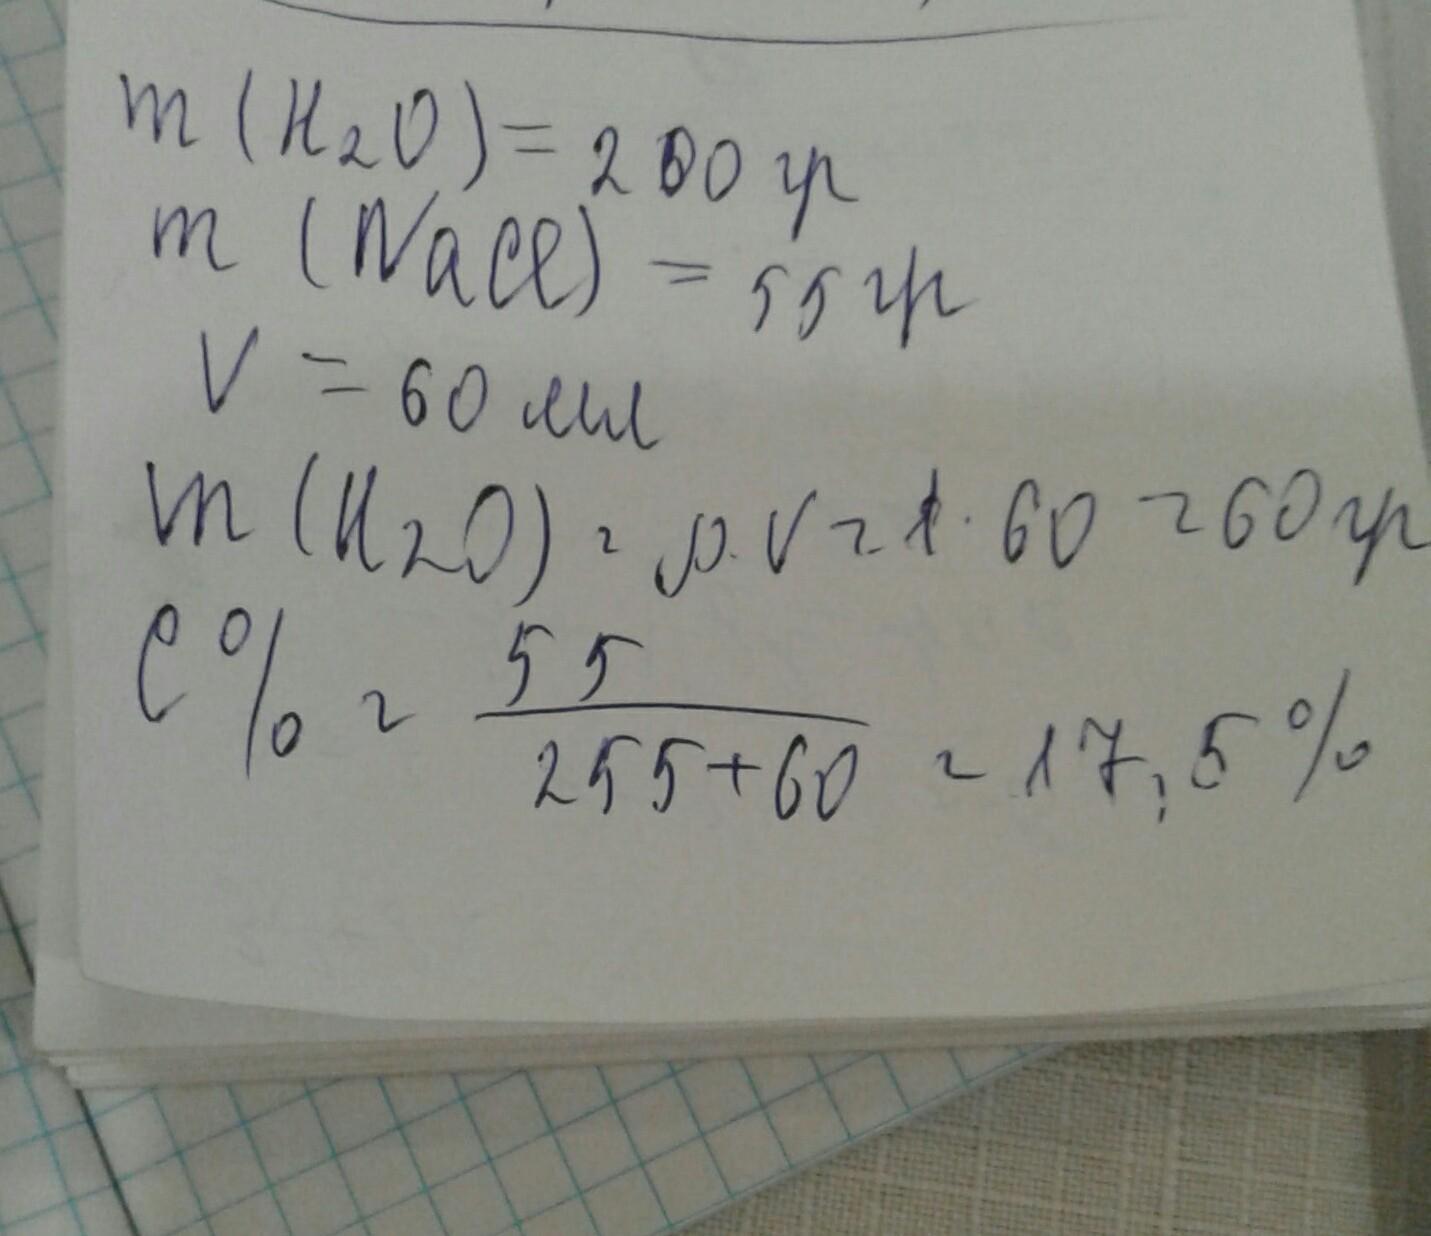 m (H₂O) = 200 гр
m (NaCl) = 55 гр
V = 60 мл
m (H₂O) = ρ · V = 1 · 60 = 60 гр
C% = 55 / 255+60 = 17,5%